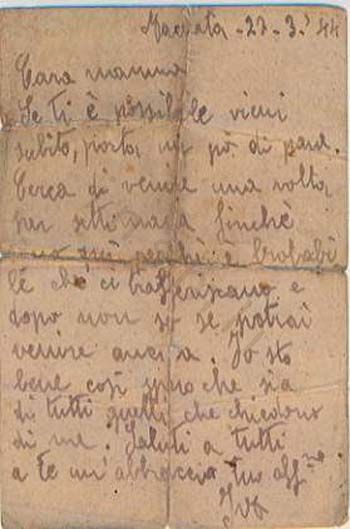 Macerata - 27 - 3 - '44
Cara mamma
Se ti è possibile vieni
subito, porta un pò di pane.
Cerca di venire una volta
per settimana finchè
sono qui perchè è probabi
le che ci trafferiscano e
dopo non so se potrai
venire ancora. Io sto
bene così spero che sia
di tutti quelli che chiedono
di me. Saluti a tutti
a te un'abbraccio tuo aff.mo